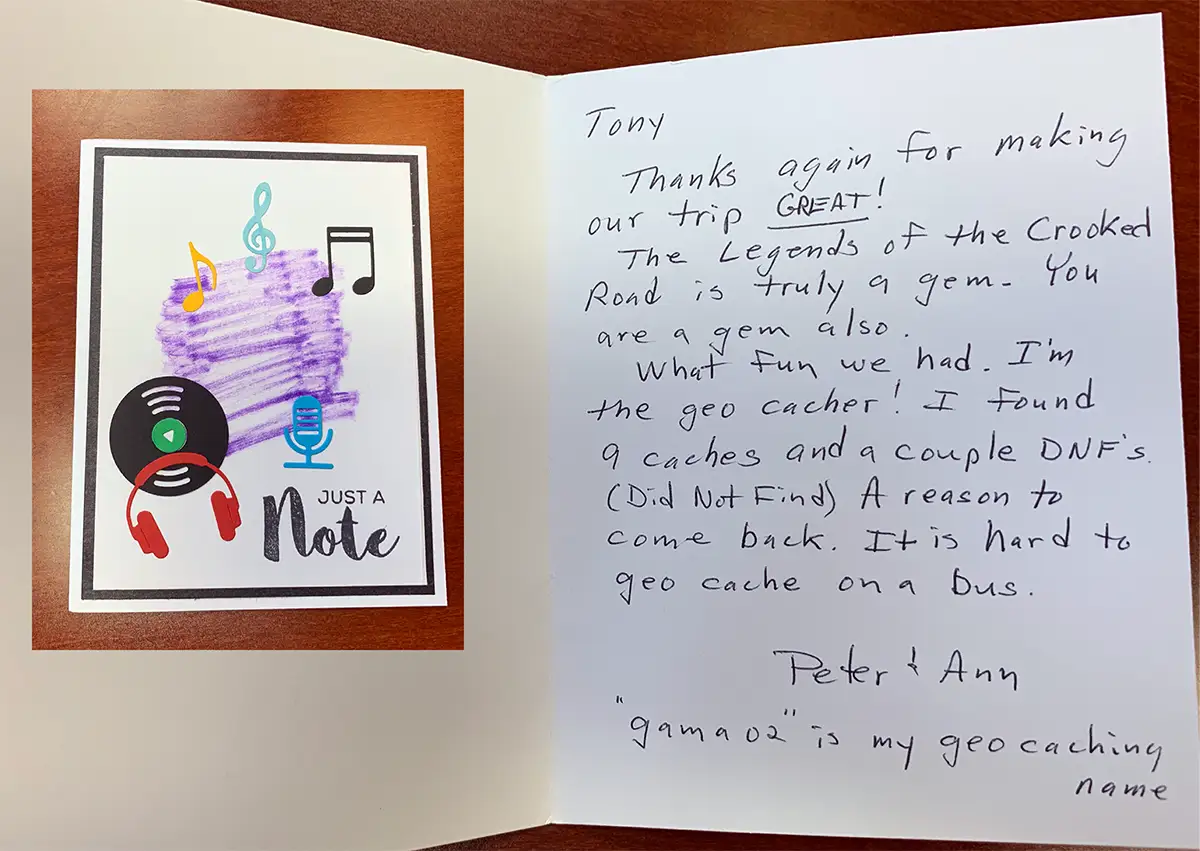 JUST A
Note
Tony
Thanks again for making
our trip GREAT!
The Legends of the Crooked
Road is truly a gem. You
are a gem also.
What fun we had. I'm
the geo cacher! I found
9 caches and a couple DNF's.
(Did Not Find) A reason to
come back. It is hard to
geo cache on a bus.
Peter & Ann
"gama02" is my geocaching
name